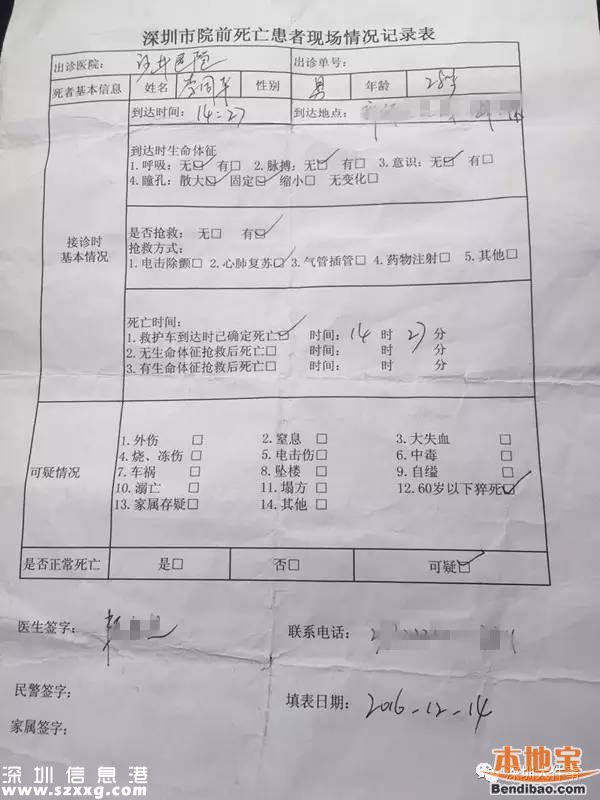 深圳市院前死亡患者现场情况记录表
出诊医院：沙井医院 出诊单号：
死者基本信息 姓名 李 性别 男 年龄 28岁
到达时间：14:27 到达地点：
接诊时
基本情况
到达时生命体征
1.呼吸：无☑ 有□ 2.脉搏：无☑ 有□ 3.意识：无☑ 有□
4.瞳孔：散大☑ 固定☑ 缩小□ 无变化□
是否抢救： 无□ 有☑
抢救方式：
1.电击除颤□ 2.心肺复苏☑ 3.气管插管□ 4.药物注射□ 5.其他□
死亡时间：
1.救护车到达时已确定死亡☑ 时间：14 时 27 分
2.无生命体征抢救后死亡□ 时间： 时 分
3.有生命体征抢救后死亡□ 时间： 时 分
可疑情况
1.外伤 □ 2.窒息 □ 3.大失血 □
4.烧、冻伤 □ 5.电击伤 □ 6.中毒 □
7.车祸 □ 8.坠楼 □ 9.自缢 □
10.溺亡 □ 11.塌方 □ 12.60岁以下猝死☑
13.家属存疑 □ 14.其他 □
是否正常死亡 是□ 否□ 可疑☑
医生签字： 联系电话：
民警签字：
填表日期：2016-12-14
家属签字：
深圳信息港
www.szxxg.com
本地宝
Bendibao.com